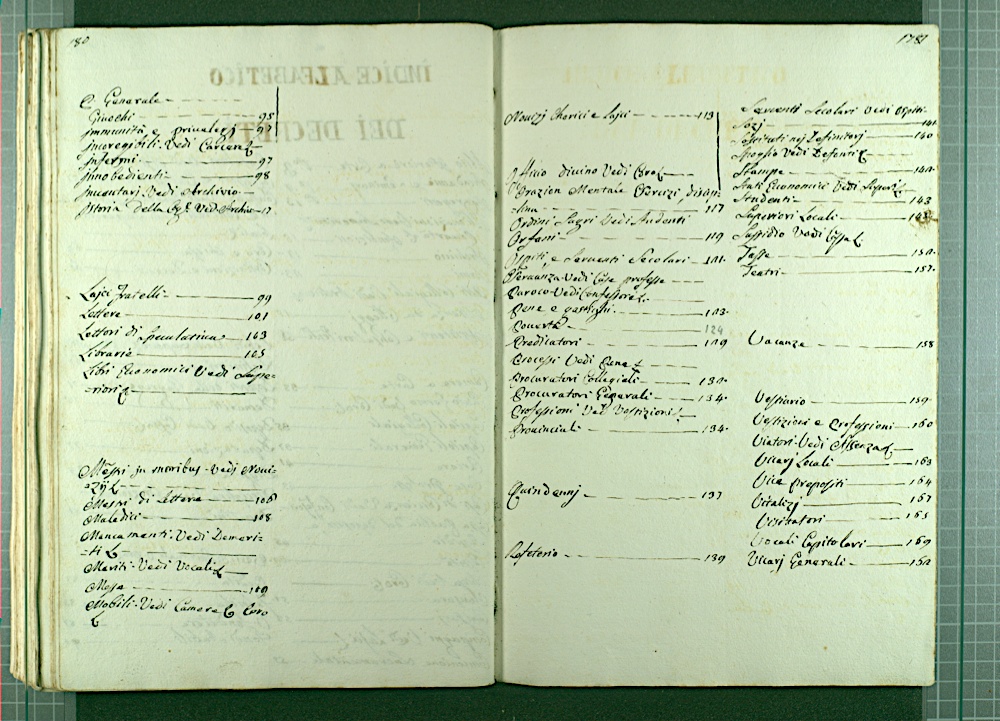 180
G. Generale
Giuochi 95
Immunità e privilegj 97
Incoregibili. Vedi Carcere &
Infermi 97
Innobedienti 98
Incautarj. Vedi Archivio
Istoria della Vedi Archivio 17
Laici Fratelli 99
Lettere 101
Lettori di Speculativa 103
Librarie 105
Libri Economici Vedi Supe=
=riori &
Mastri in moribus. Vedi Novi=
=zij &
Mastri di Lettere 106
Maledici 108
Mancamenti. Vedi Demeri=
=ti &
Mariti. Vedi Vocali &
Messe 109
Mobili. Vedi Camere &
&
1781
Novizj Chorici e Laici 113
Officio divino Vedi Coro &
Orazion Mentale Esercizj, discip=
=lina 117
Ordini Sagri Vedi Studenti
Orfani 119
Ospiti, e Serventi Secolari 121
Paroco. Vedi Confessore &
Pene e gastighi 123
Povertà 124
Predicatori 129
Processi Vedi Pene &
Procuratori Collegiali 130
Procuratori Generali 134
Professioni Vedi Vestizioni &
Provinciali 134
Quindennj 137
Refetorio 139
Serventi Secolari Vedi Ospiti
Sozj 141
Sostituti nej Definitorj 140
Spoglio Vedi Defonti &
Stampe 142
Stati Economici Vedi Superi &
Studenti 143
Superiori Locali 148
Sussidio Vedi &
Tasse 150
Teatri 157
Vacanze 158
Vestiario 159
Vestizioni e Professioni 160
Viatori. Vedi Assenza &
Vicarj Locali 163
Vice Prepositi 164
Vitalizj 167
Visitatori 165
Vocali Capitolari 169
Vicarj Generali 162